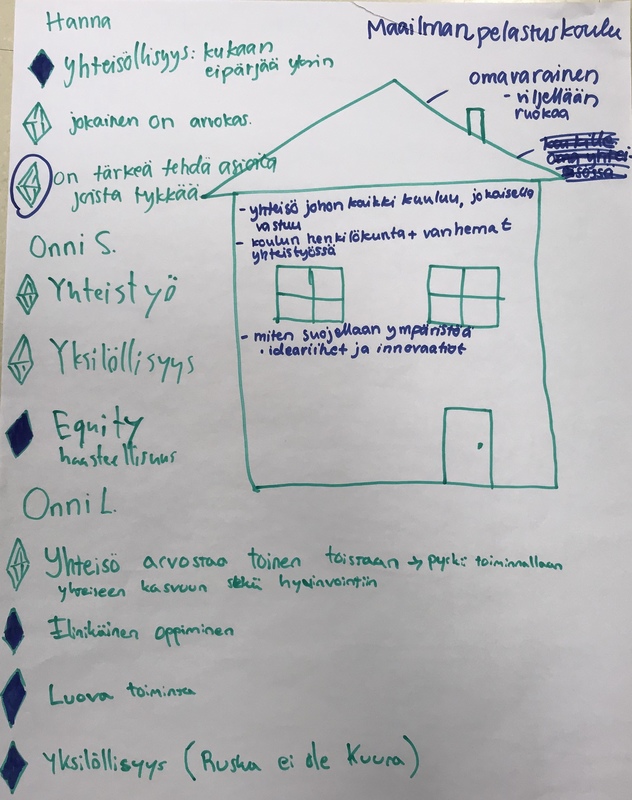 Hanna
Maailman pelastuskoulu
yhteisöllisyys: kukaan
ei pärjää yksin
jokainen on arvokas.
on tärkeä tehdä asioita
joista tykkää
omavarainen
- viljellään
ruokaa
- yhteisö johon kaikki kuuluu, jokaisella
vastuu
- koulun henkilökunta + vanhemat
yhteistyössä
- miten suojellaan ympäristöä
• ideariihet ja innovaatiot
Onni S.
Yhteistyö
Yksilöllisyys
Equity
haasteellisuus
Onni L.
Yhteisö arvostaa toinen toistaan → pyrkii toiminnallaan
yhteiseen kasvuun sekä hyvinvointiin
Elinikäinen oppiminen
Luova toiminta
Yksilöllisyys (Ruska ei ole Kuura)